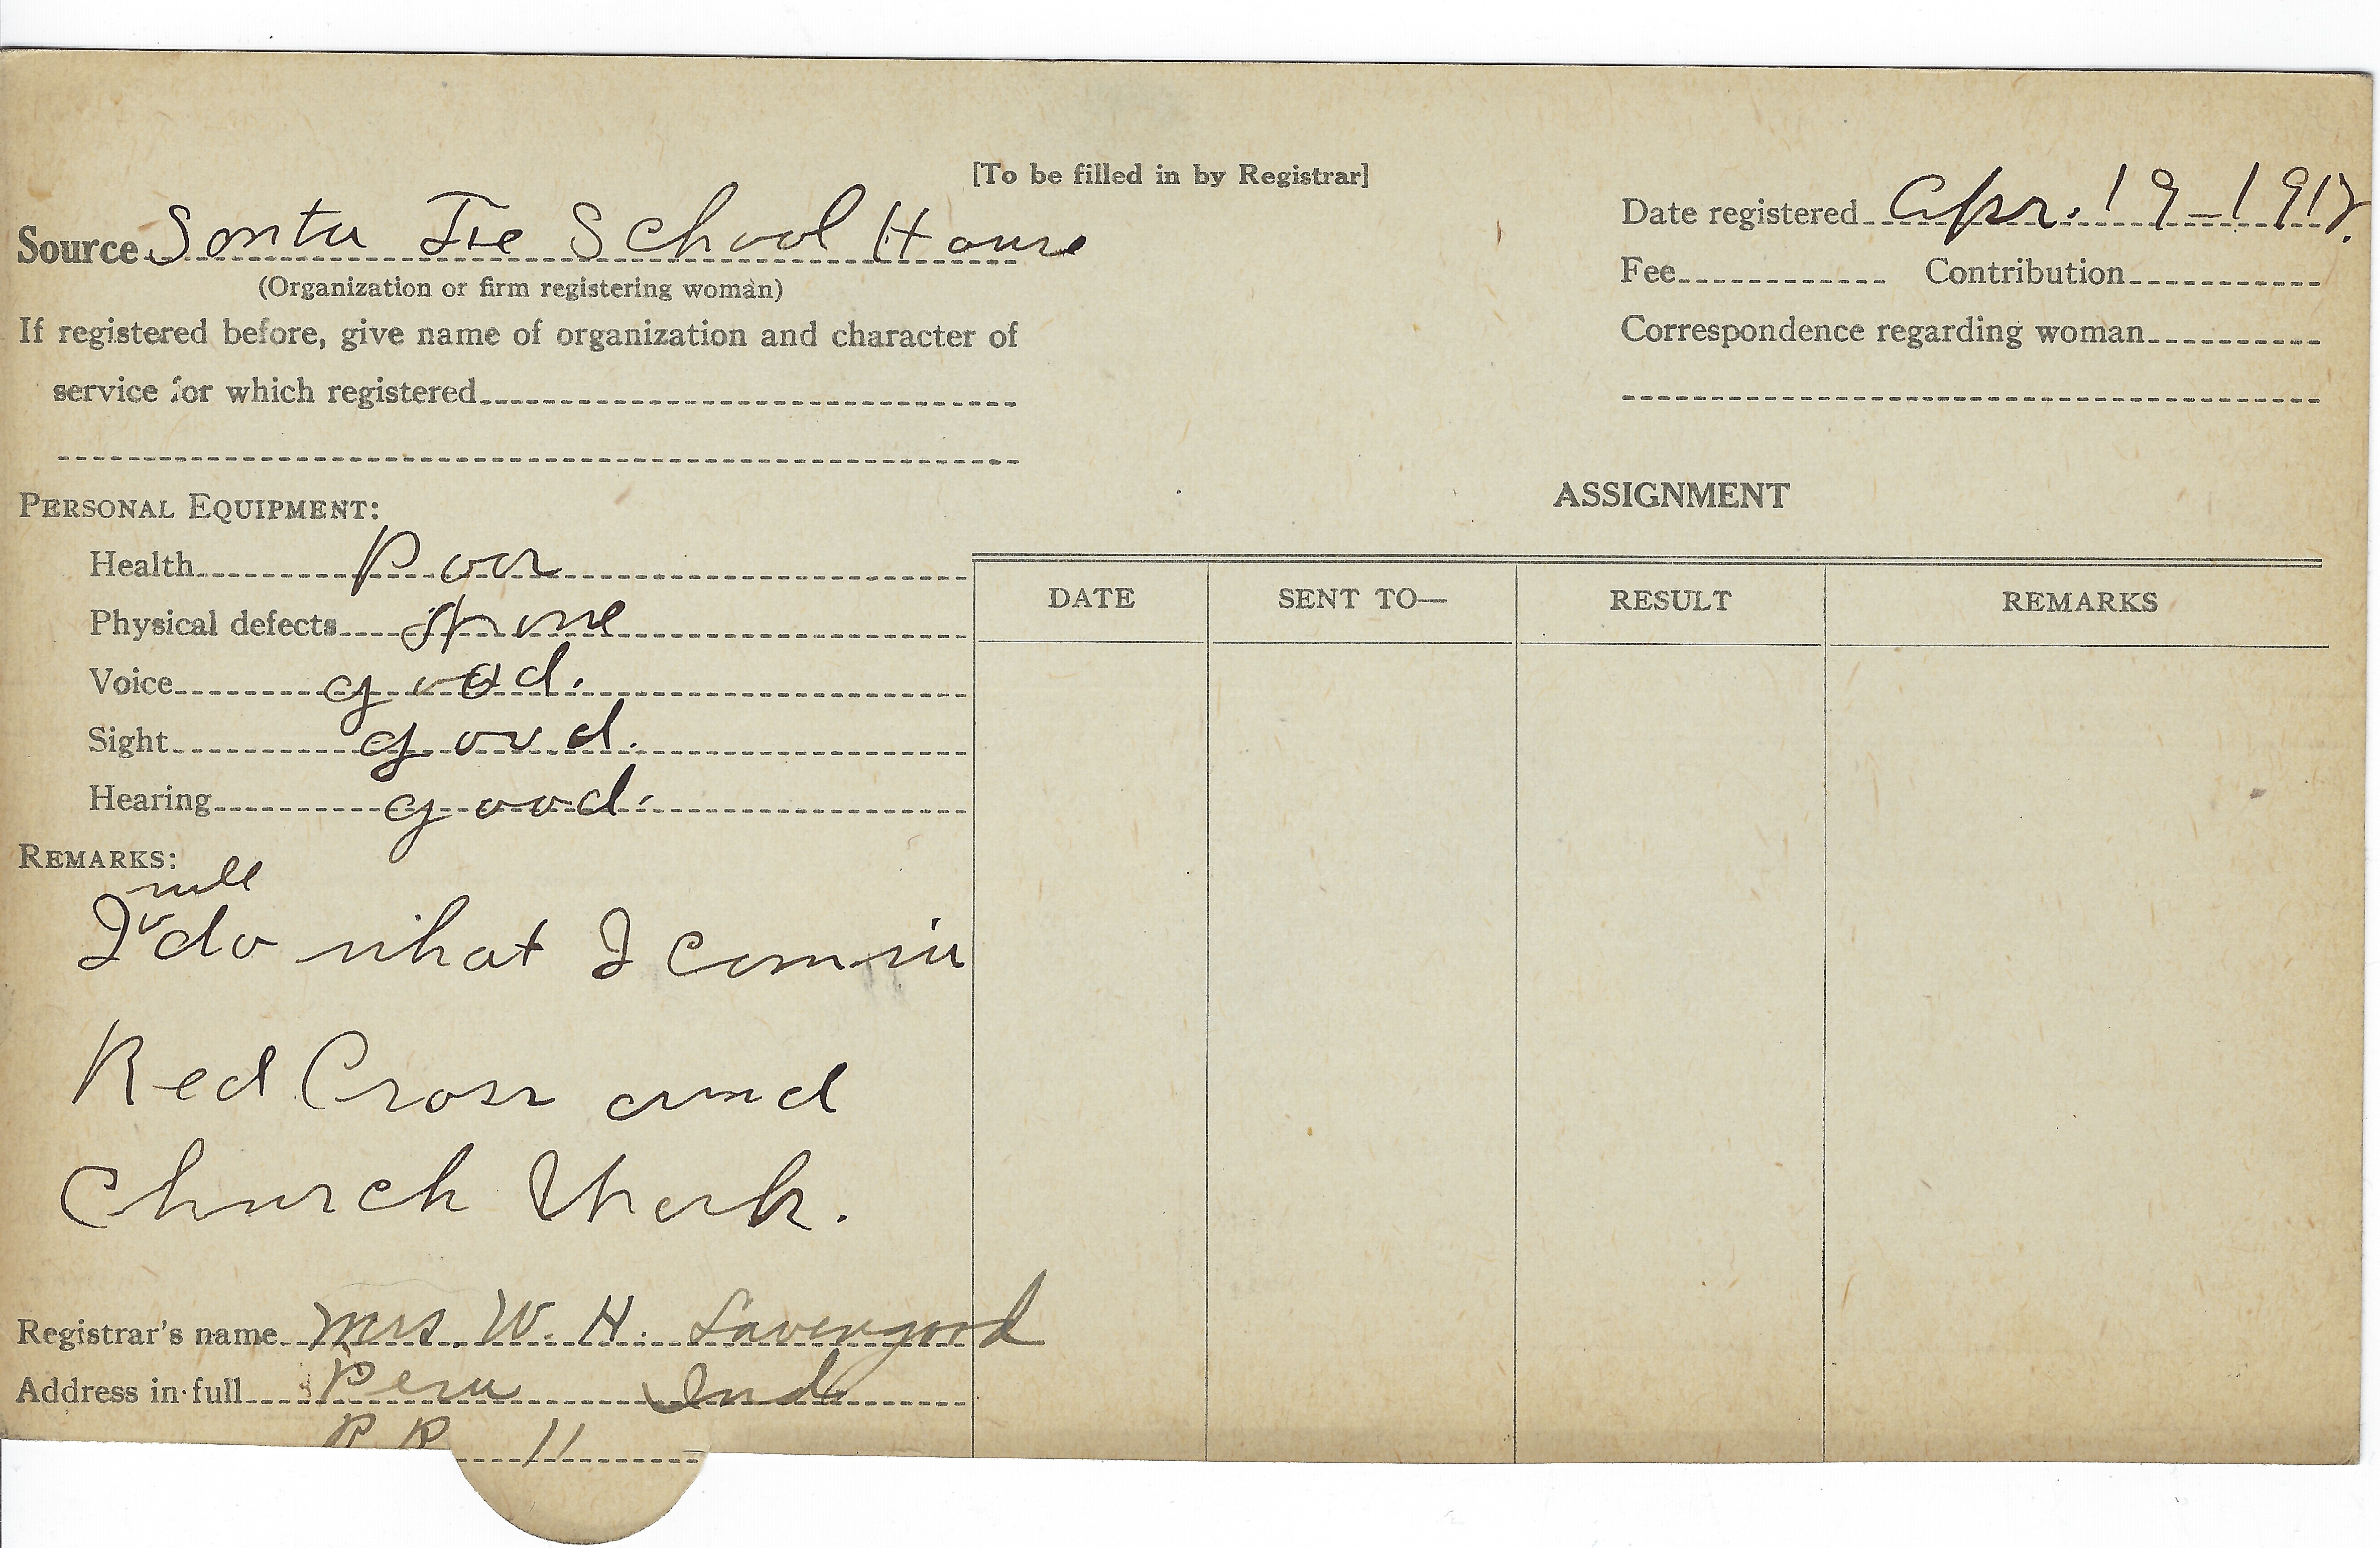 [To be filled in by Registrar]
Source Santa Fe School House
(Organization or firm registering woman)
If registered before, give name of organization and character of
service for which registered
Date registered Apr. 19-1918.
Fee Contribution
Correspondence regarding woman
PERSONAL EQUIPMENT:
Health Poor
Physical defects spine
Voice good.
Sight good.
Hearing good.
REMARKS:
will
I do what I can in
Red Cross and
Church Work.
Registrar's name Mrs. W. H. Lavengood
Address in full Peru Ind
R R 11
ASSIGNMENT
DATE SENT TO— RESULT REMARKS